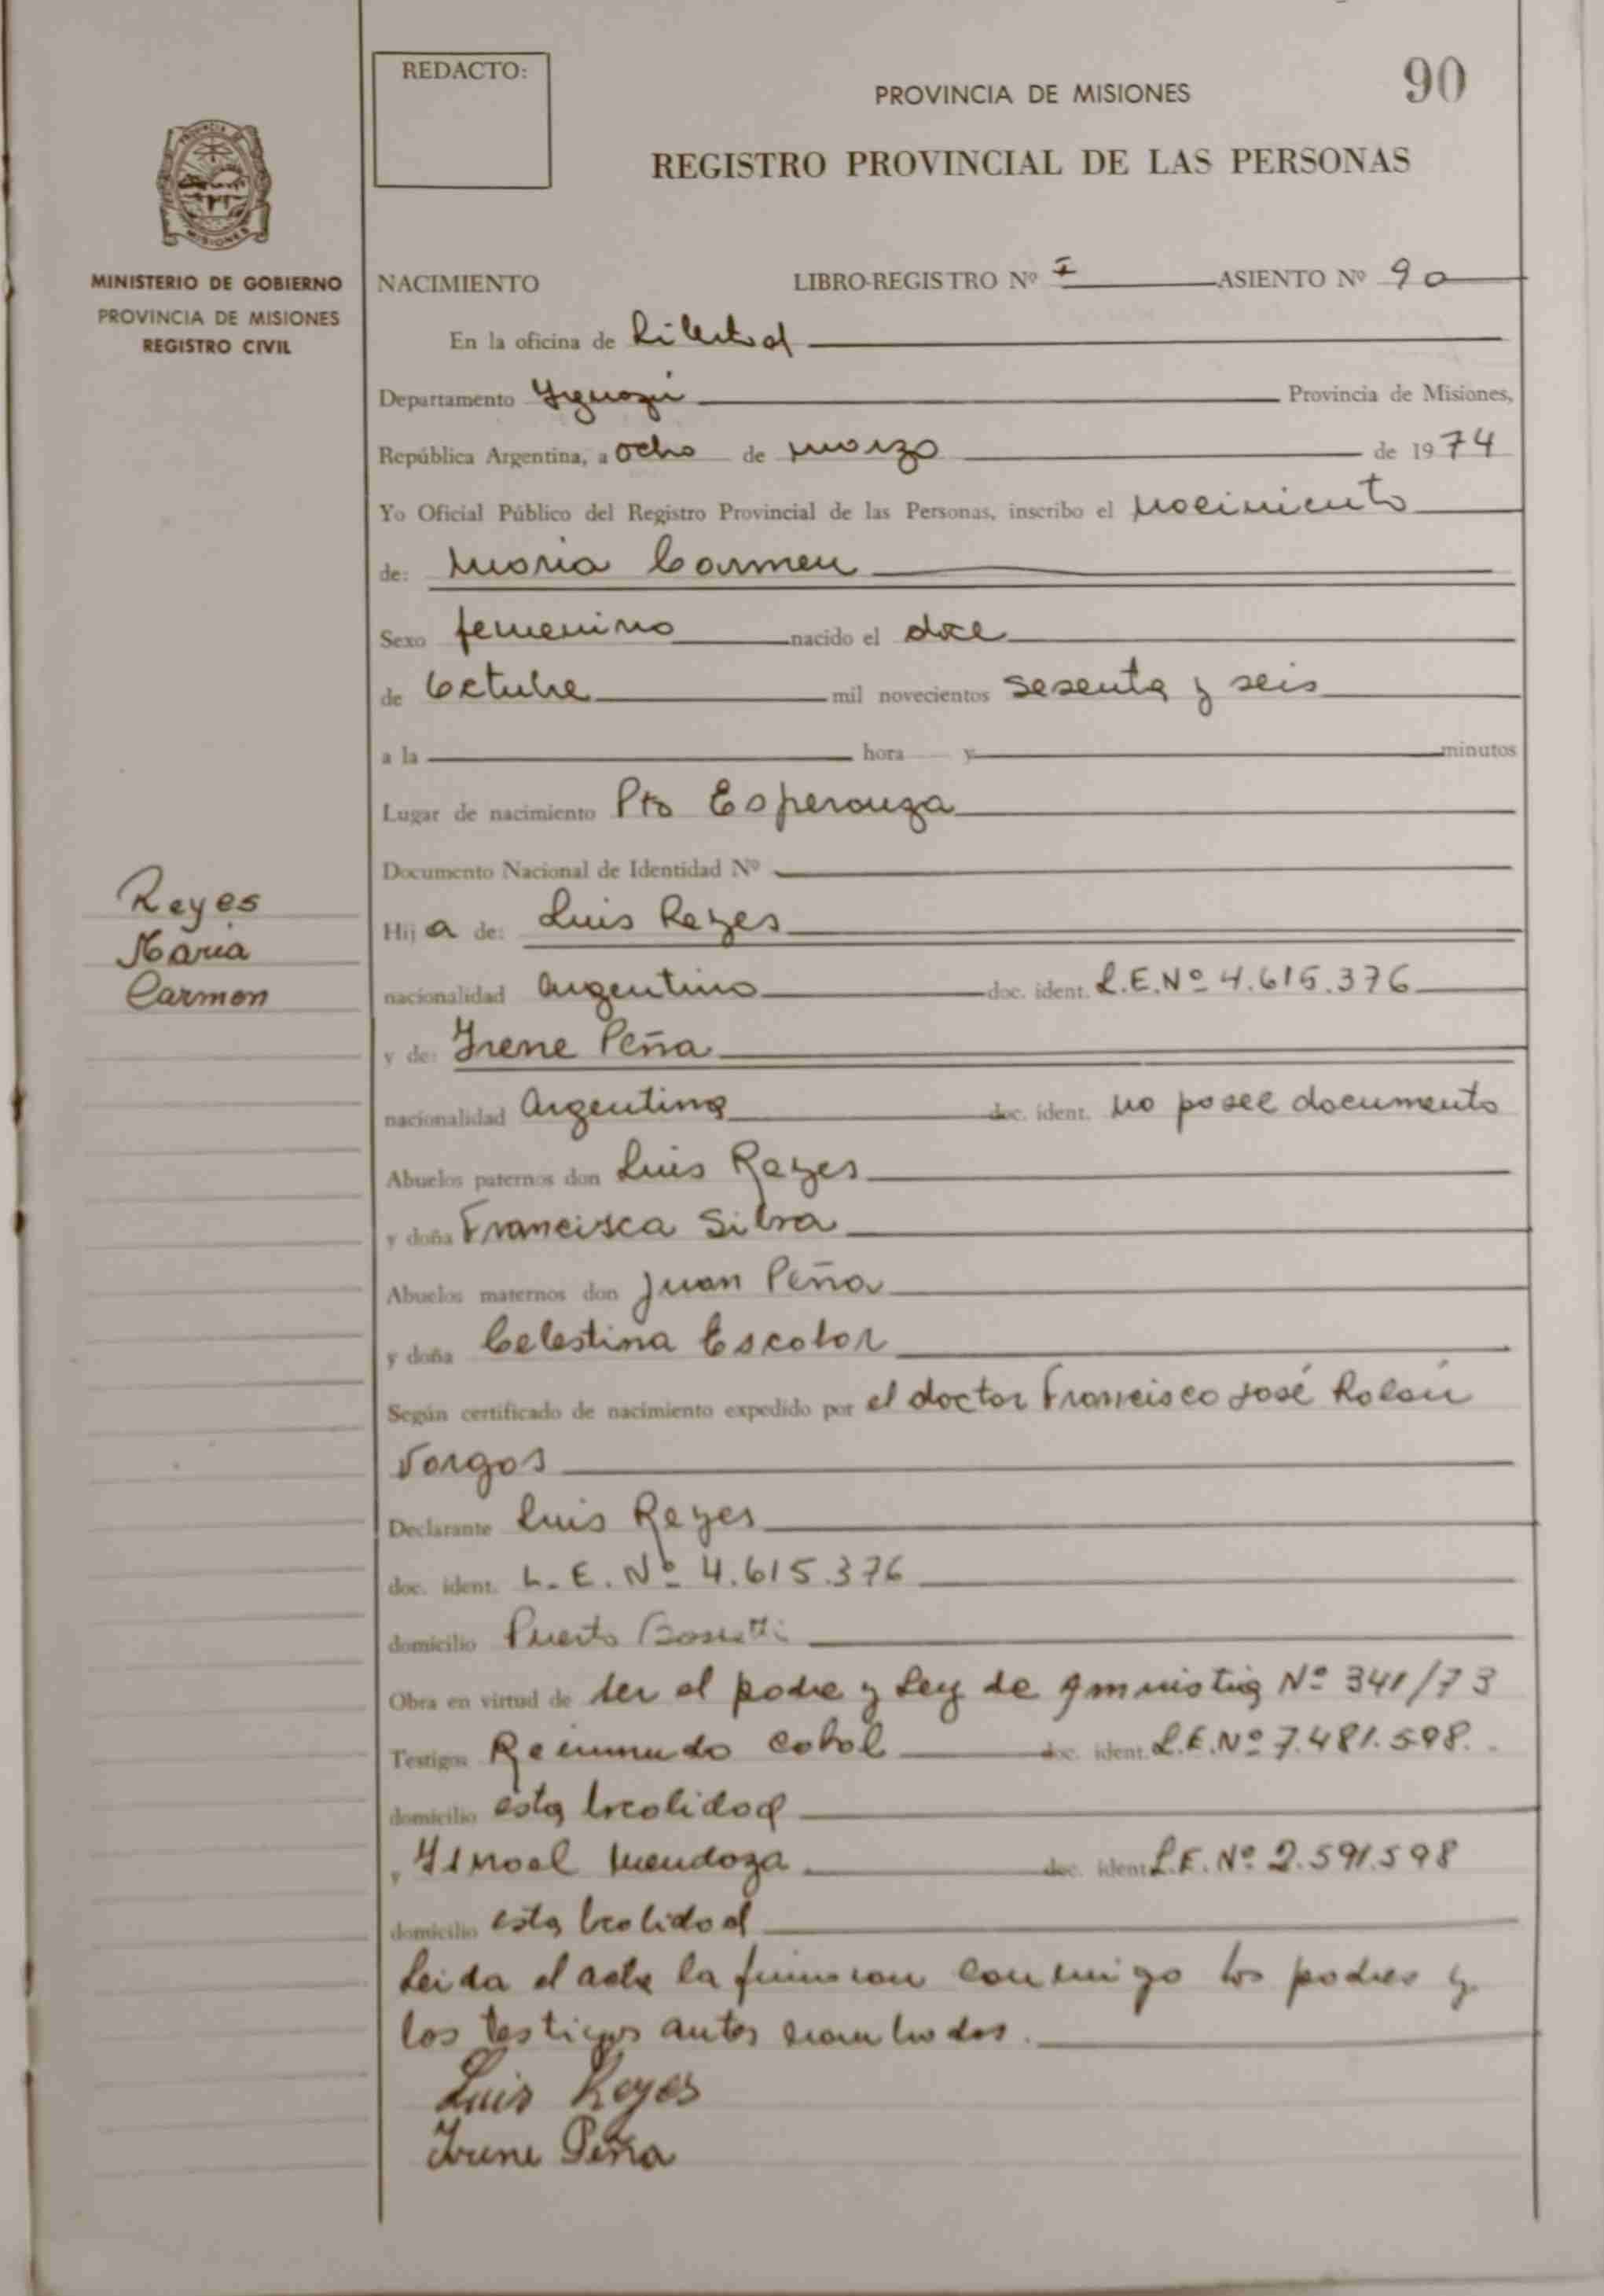 REDACTO:
90
PROVINCIA DE MISIONES
REGISTRO PROVINCIAL DE LAS PERSONAS
PROVINCIA DE
MISIONES
MINISTERIO DE GOBIERNO
PROVINCIA DE MISIONES
REGISTRO CIVIL
NACIMIENTO LIBRO-REGISTRO Nº I ASIENTO Nº 90
En la oficina de Libertad
Departamento Yguazú Provincia de Misiones,
República Argentina, a ocho de marzo de 1974
Yo Oficial Público del Registro Provincial de las Personas, inscribo el nacimiento
de: Maria Carmen
Sexo femenino nacido el doce
de Octubre mil novecientos sesenta y seis
a la hora y minutos
Lugar de nacimiento Pto Esperanza
Documento Nacional de Identidad Nº
Reyes
Maria
Carmen
Hija de: Luis Reyes
nacionalidad Argentino doc. ident. L.E.Nº 4.615.376
y de: Irene Peña
nacionalidad Argentina doc. ident. no posee documento
Abuelos paternos don Luis Reyes
y doña Francisca Silva
Abuelos maternos don Juan Peña
y doña Celestina Escobar
Según certificado de nacimiento expedido por el doctor Francisco José Rolón
Vargas
Declarante Luis Reyes
doc. ident. L.E. Nº 4.615.376
domicilio Puerto Bossetti
Obra en virtud de ser el padre y Ley de Amnistia Nº 341/73
Testigos Reimundo Cabal doc. ident. L.E.Nº 7.481.598.
domicilio esta localidad
y Ismael Mendoza doc. ident. L.E. Nº 2.591.598
domicilio esta localidad
Leida el acta la firman conmigo los padres y
los testigos antes nombrados.
Luis Reyes
Irene Peña